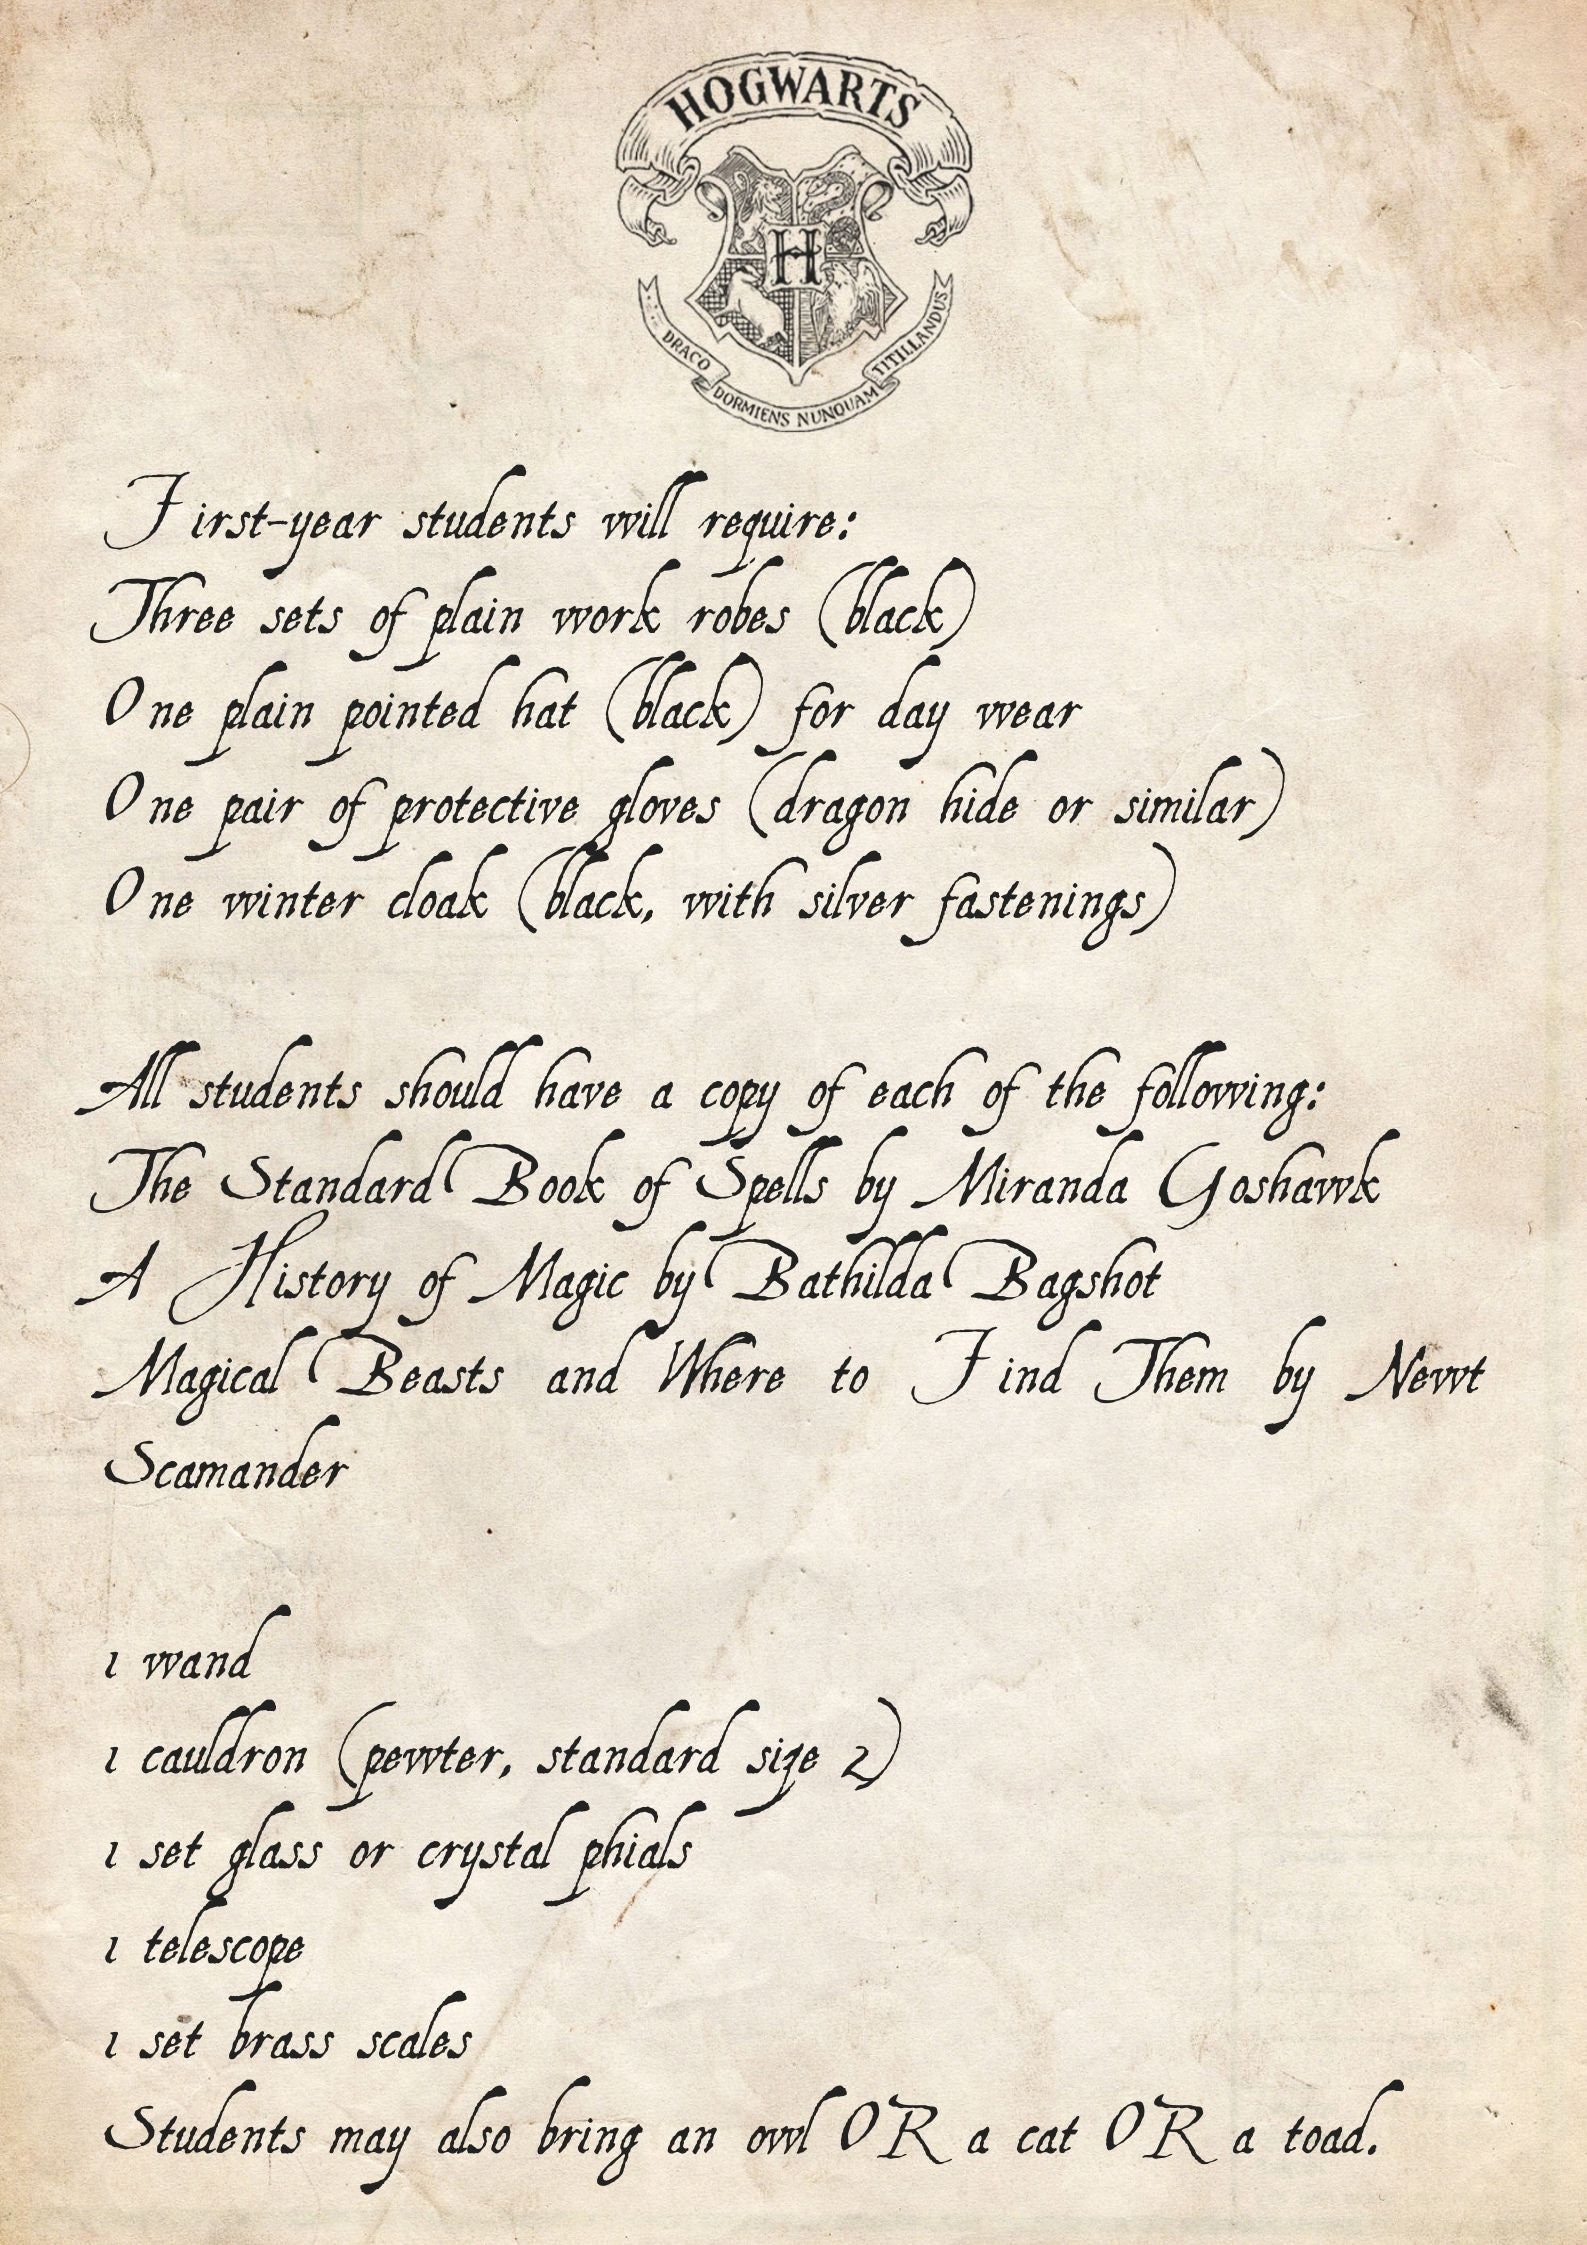 HOGWARTS
H
DRACO DORMIENS NUNQUAM TITILLANDUS
First-year students will require:
Three sets of plain work robes (black)
One plain pointed hat (black) for day wear
One pair of protective gloves (dragon hide or similar)
One winter cloak (black, with silver fastenings)
All students should have a copy of each of the following:
The Standard Book of Spells by Miranda Goshawk
A History of Magic by Bathilda Bagshot
Magical Beasts and Where to Find Them by Newt
Scamander
1 wand
1 cauldron (pewter, standard size 2)
1 set glass or crystal phials
1 telescope
1 set brass scales
Students may also bring an owl OR a cat OR a toad.